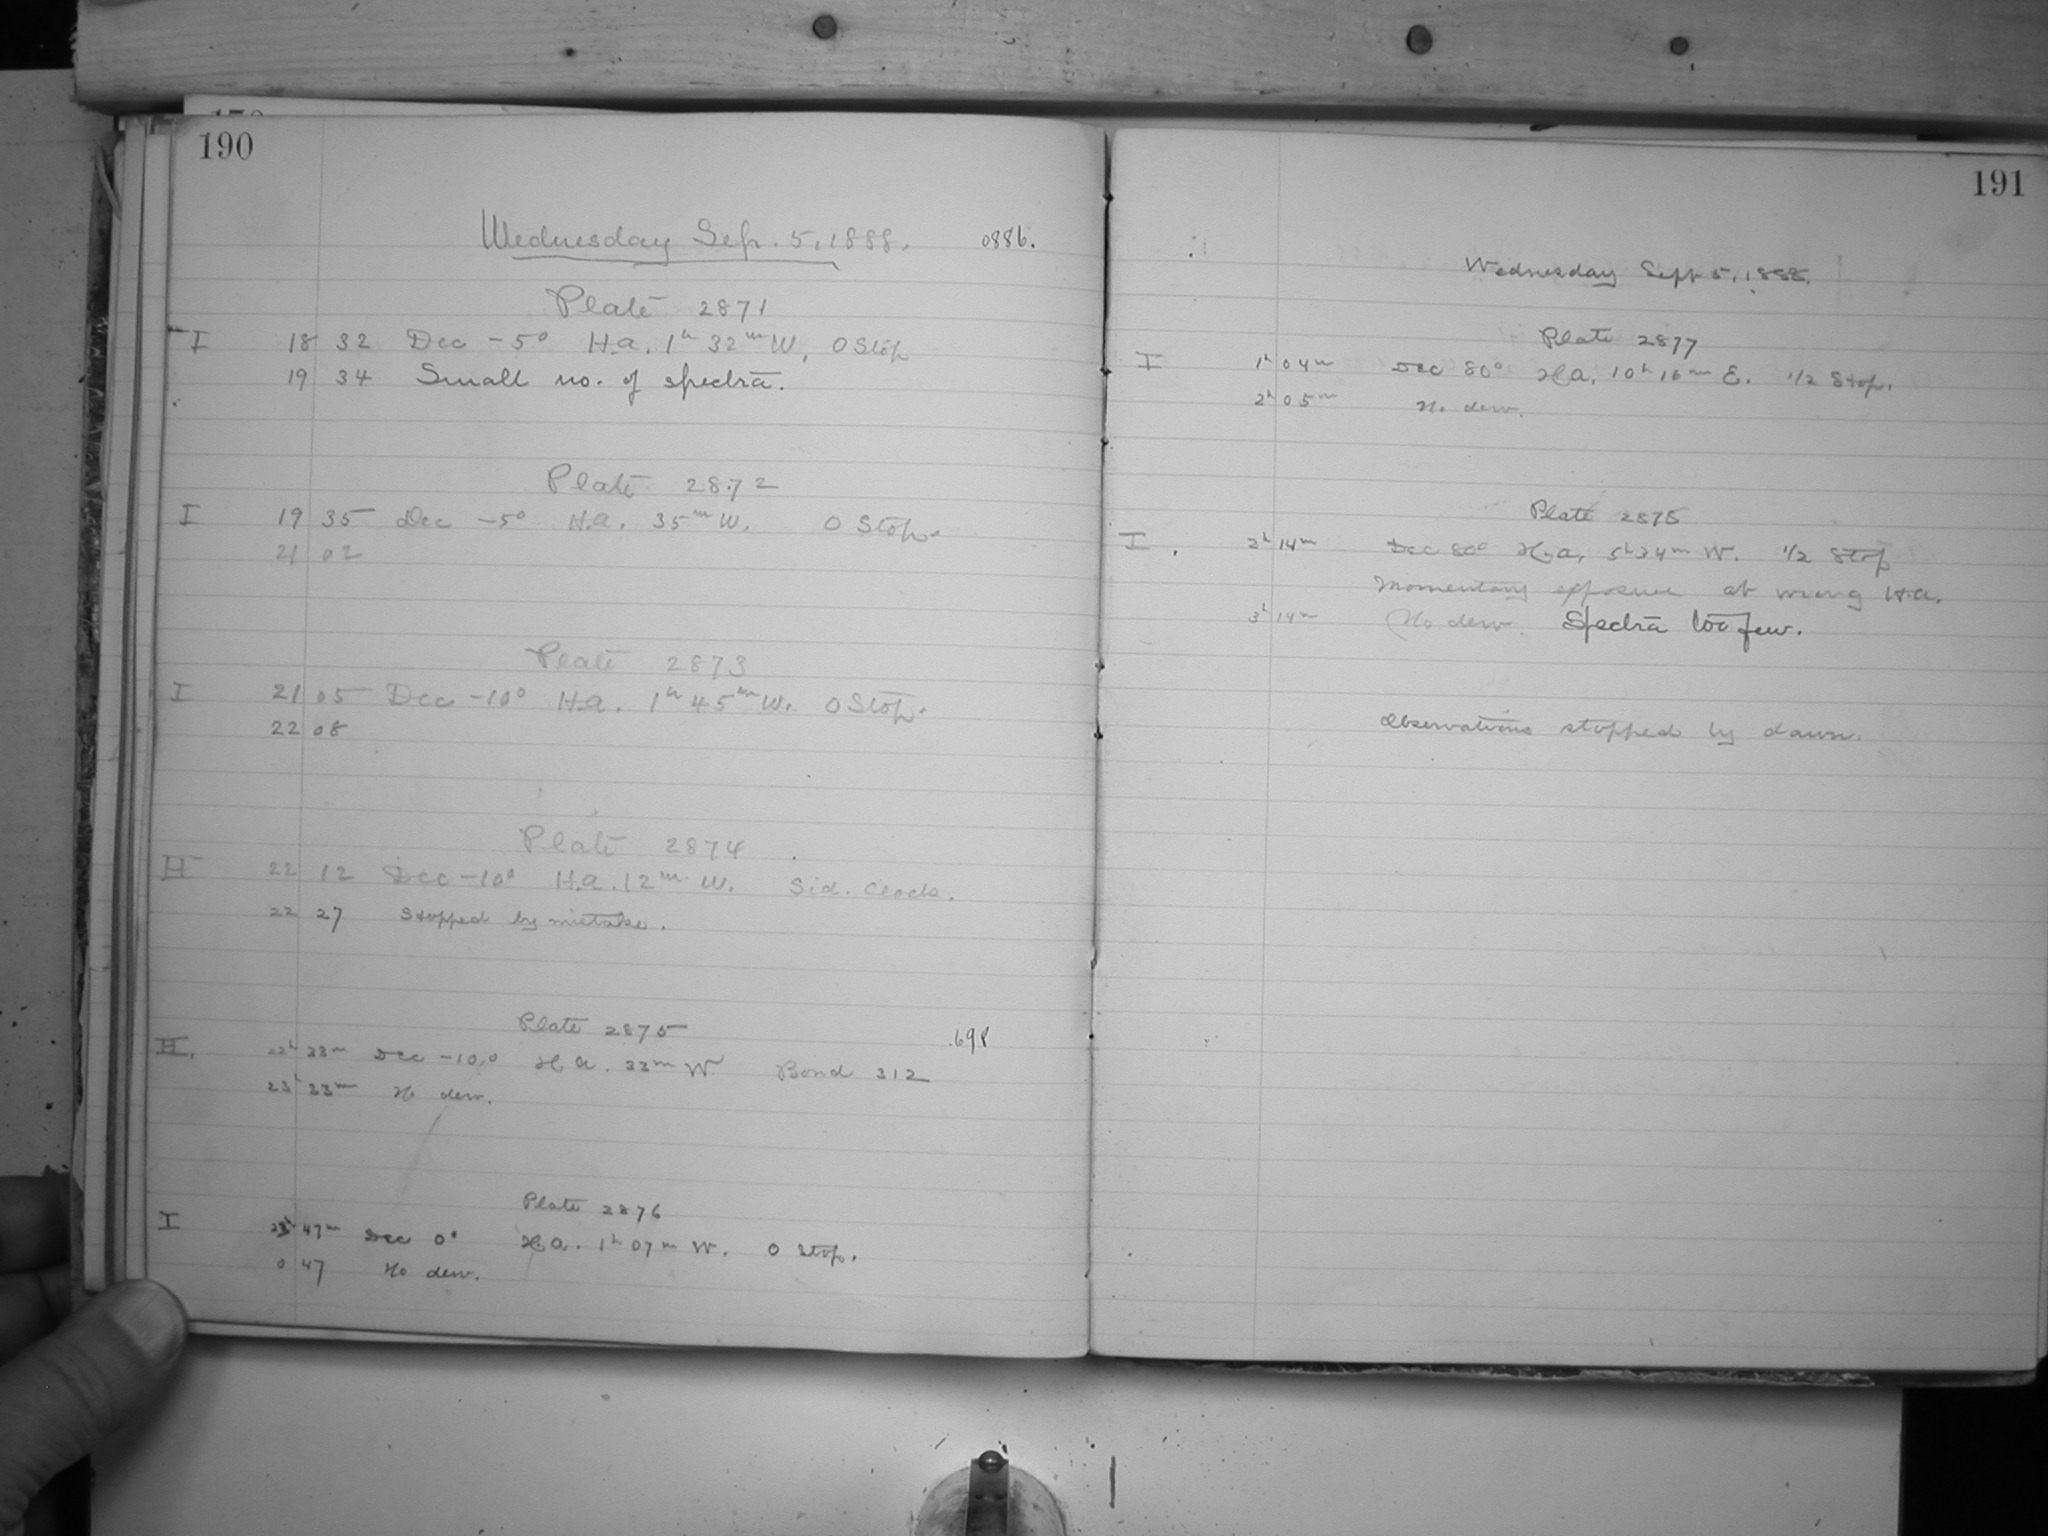 190
Wednesday Sep. 5, 1888. 0886.
Plate 2871
I 18 32 Dec -5° H.a. 1h 32m W, 0 Stop
19 34 Small no. of spectra.
Plate 2872
I 19 35 Dec -5° H.a. 35m W. 0 Stop.
21 02
Plate 2873
I 21 05 Dec -10° H.a. 1h 45m W. 0 Stop.
22 08
Plate 2874
II 22 12 Dec -10° H.a. 12m W. Sid. Clock.
22 27 Stopped by mistake.
Plate 2875 .698
II. 22h 33m Dec -10.0 H.a. 33m W Bond 312
23h 33m No dew.
Plate 2876
I 23h 47m Dec 0° H.a. 1h 07m W. 0 Stop.
0 47 No dew.
191
Wednesday Sept 5, 1888.
Plate 2877
I 1h 04m Dec 80° H.a. 10h 16m E. 1/2 Stop.
2h 05m No dew.
Plate 2878
I. 2h 14m Dec 80° H.a. 5h 24m W. 1/2 Stop
Momentary exposure at wrong H.a.
3h 14m No dew. Spectra too few.
Observations stopped by dawn.